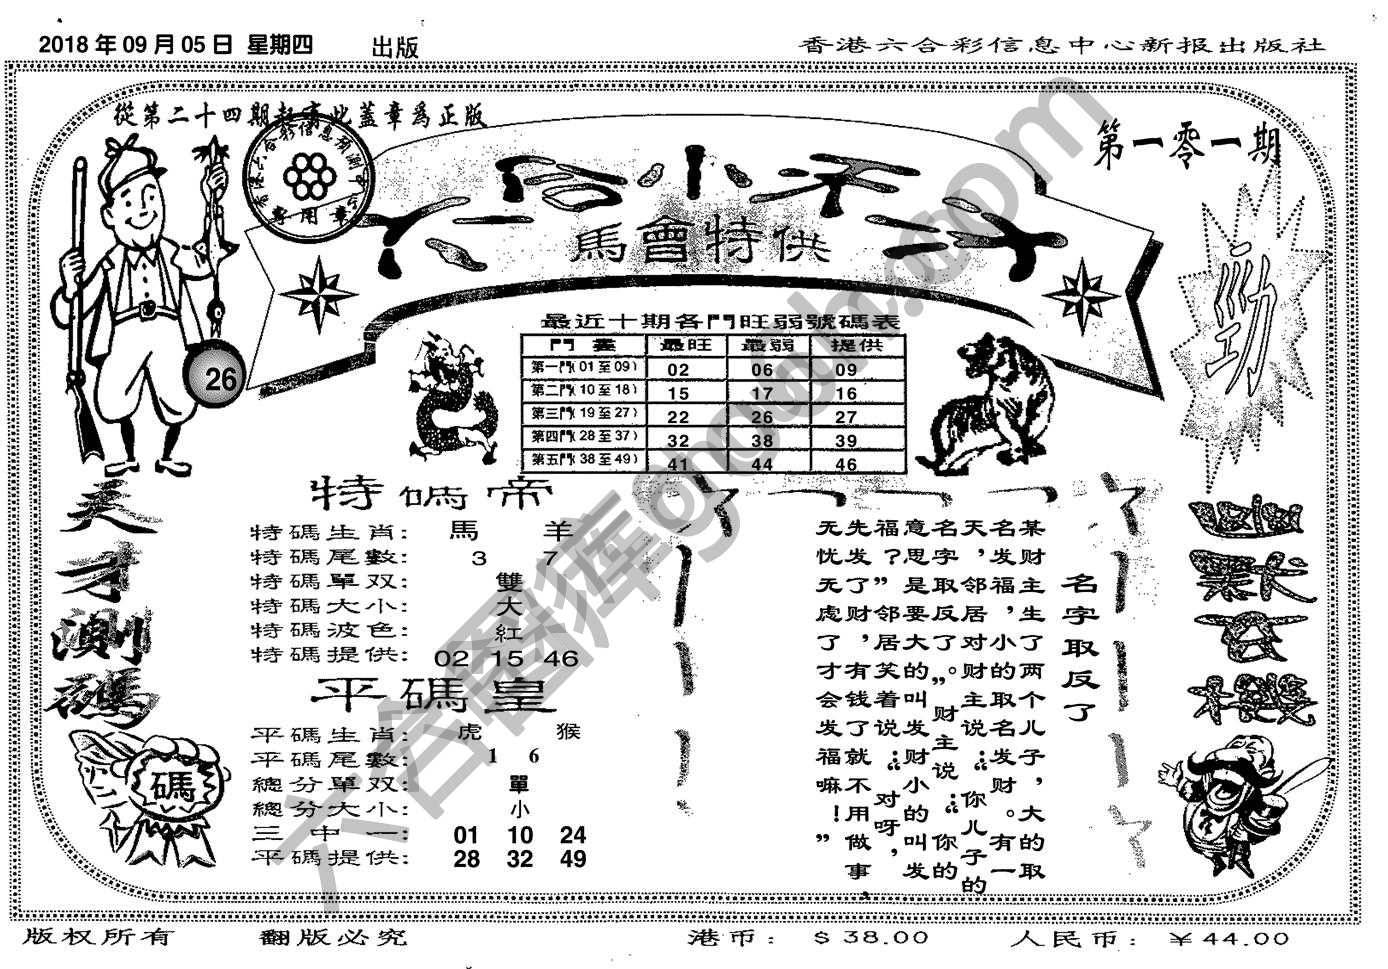 2018 年 09 月 05 日 星期四 出版
香港六合彩信息中心新报出版社
從第二十四期起寄此蓋章爲正版
專用章
第一零一期
馬會特供
26
勁
最近十期各門旺弱號碼表
最旺 最弱 提供
第一門(01 至 09) 02 06 09
第二門(10 至 18) 15 17 16
第三門(19 至 27) 22 26 27
第四門(28 至 37) 32 38 39
第五門(38 至 49) 41 44 46
天才測碼
碼
特碼帝
特碼生肖: 馬 羊
特碼尾數: 3 7
特碼單双: 雙
特碼大小: 大
特碼波色: 紅
特碼提供: 02 15 46
平碼皇
平碼生肖: 虎 猴
平碼尾數: 1 6
總分單双: 單
總分大小: 小
三中一: 01 10 24
平碼提供: 28 32 49
名字取反了
某财主生了两个儿子，大的取
名发福，小的取名发财。有一
天，邻居对财主说：“你儿子的
名字取反了。”财主说：“你的
意思是要大的叫发财小的叫发
福？”邻居笑着说：“对呀，
先发了财，有钱了就不用做事，
无忧无虑了才会发福嘛！”
六合图库ghgdh.com
版权所有 翻版必究 港币: $ 38.00 人民币: ¥ 44.00